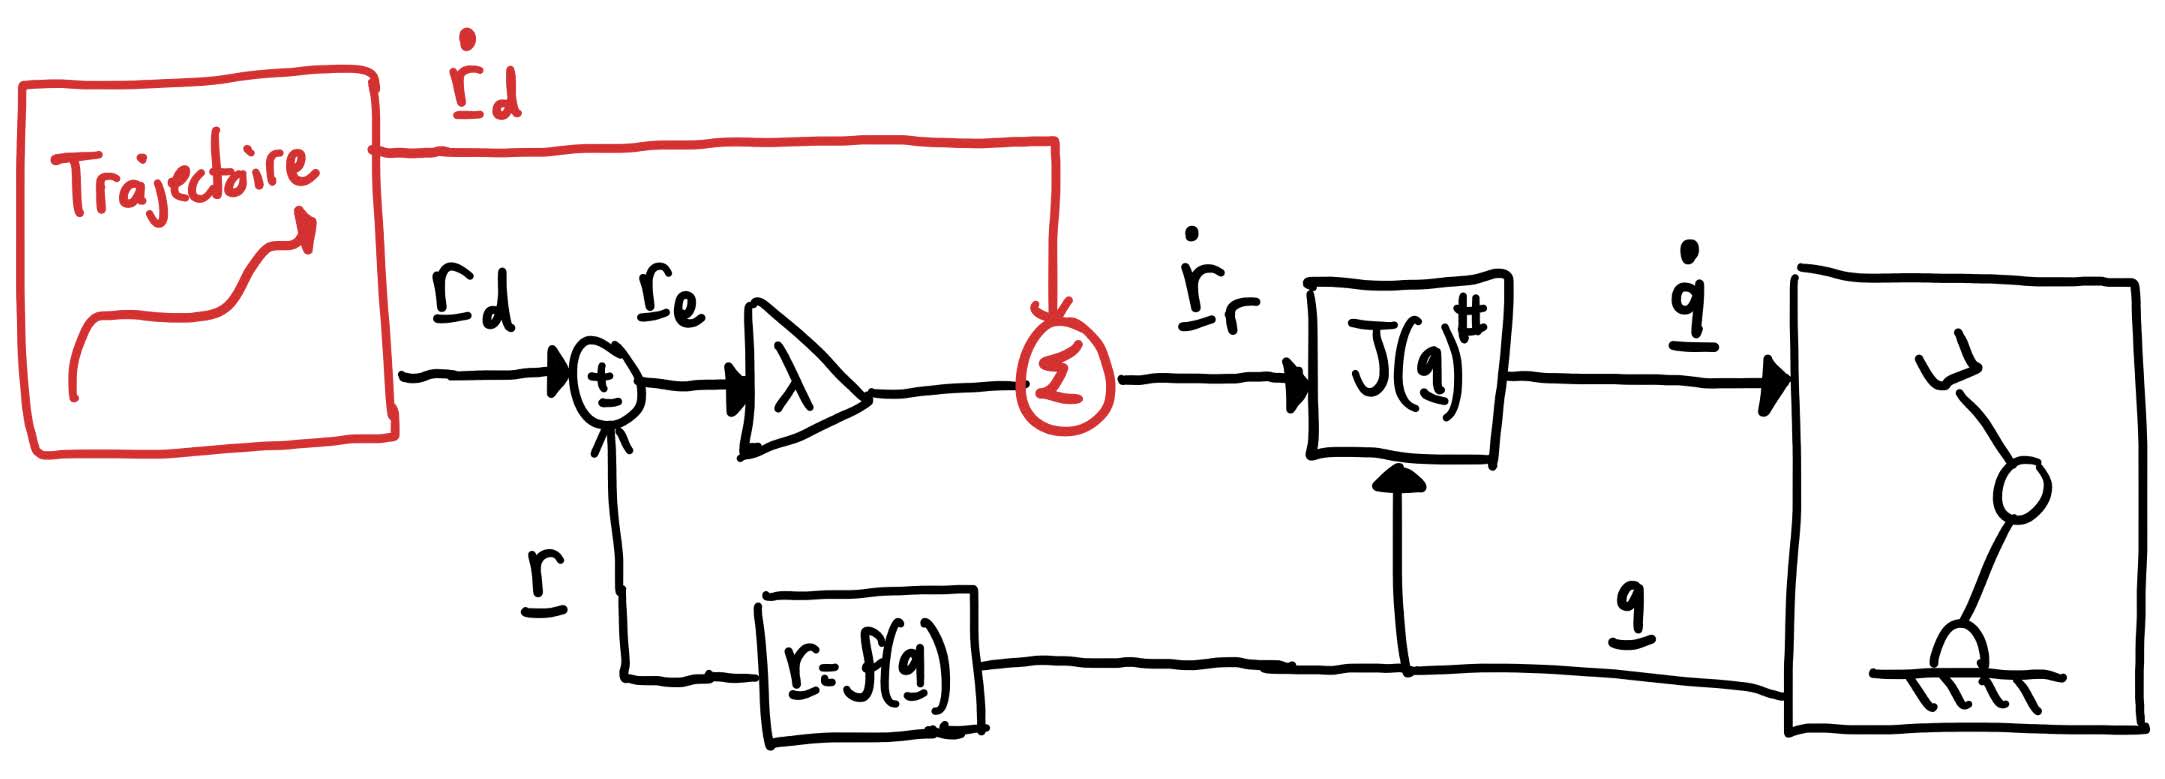 ṙ_d
Trajectoire
r_d
r_e
λ
±
Σ
ṙ_r
J(q)^#
q̇
r
r = f(q)
q